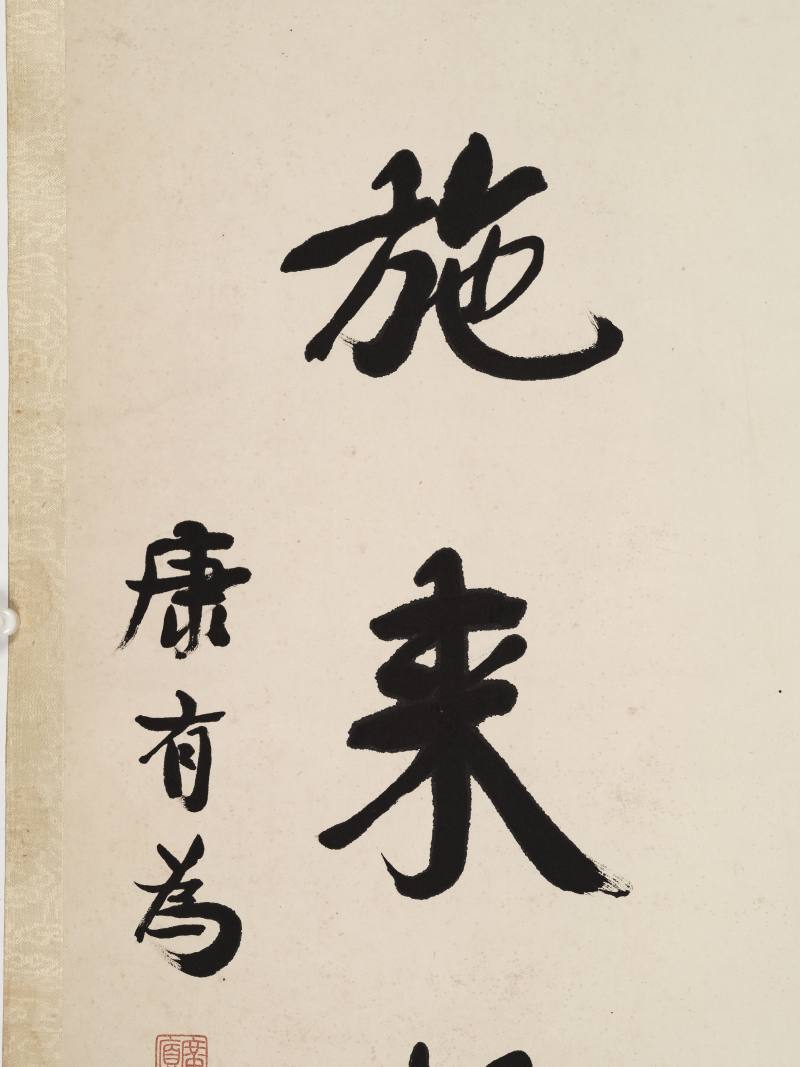 施来
康有為